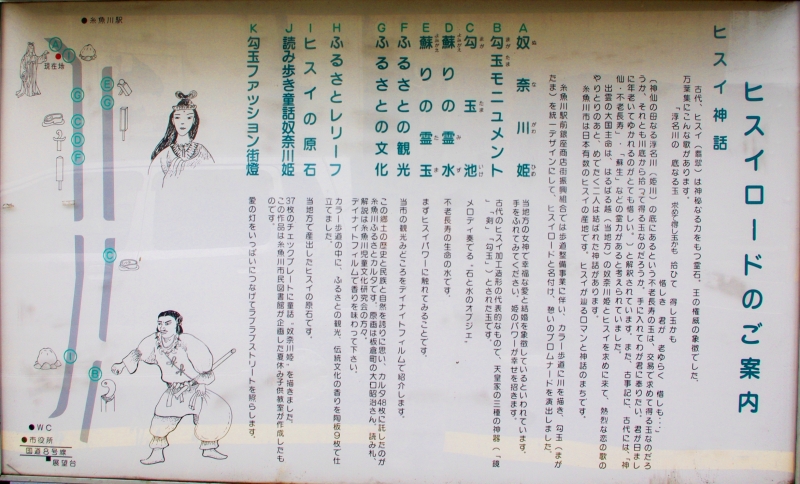 ヒスイロードのご案内
ヒスイ神話
古代、ヒスイ(翡翠)は神秘なる力をもつ霊石、王の権威の象徴でした。
万葉集にこんな歌があります。
「渟名川の 底なる玉 求めて得し玉かも 拾ひて 得し玉かも
惜しき 君が 老ゆらく 惜しも…」
(神仙の母なる渟名川(姫川)の底にあるという不老長寿の玉は、交易で求めて得る玉なのだろ
うか、それとも川底から拾って得る玉なのだろうか、手に入れてわが君に奉りたい。君が日まし
に年老いてゆかれるのがとても惜しい。)と解釈されています。また、古事記に、古代には、「神
仙・不老長寿」・「蘇生」などの霊力があると考えられていました。
出雲の大国主命は、はるばる越(当地方)の奴奈川姫とヒスイを求めに来て、熱烈な恋の歌の
やりとりのあと、めでたく二人は結ばれた神話があります。
糸魚川市は日本有数のヒスイの産地です。ヒスイが薫るロマンと神話のまちです。
糸魚川駅前銀座商店街振興組合では歩道整備事業に伴い、カラー歩道に川を描き、勾玉(まが
たま)を統一デザインにして、ヒスイロードと名付け、憩いのプロムナードを演出しました。
A 奴奈川姫
ぬ な がわ ひめ
当地方の女神で幸福な愛と結婚を象徴しているといわれています。
手をふれてみてください。姫のパワーが幸せを招きます。
B 勾玉モニュメント
まが たま
古代のヒスイ加工造形の代表的なもので、天皇家の三種の神器(「鏡」
「剣」、「勾玉」)とされた玉です。
C 勾玉池
まが たま いけ
メロディ奏でる・石と水のオブジェ・
D 蘇りの霊水
よみがえ みず
不老長寿の生命の水です。
E 蘇りの霊玉
よみがえ たま
まずヒスイパワーに触れてみることです。
F ふるさとの観光
当市の観光みどころをデイナイトフィルムで紹介します。
G ふるさとの文化
この郷土の歴史と民族と自然を誇りに思い、カルタ48枚に託したのが
糸魚川ふるさとカルタです。原画は板倉町の大口昭治さん、読み札、
解説は糸魚川児童文化研究会の方々。
デイナイトフィルムで香りを味わって下さい。
H ふるさとレリーフ
カラー歩道の中に、ふるさとの観光、伝統文化の香りを陶板9枚で仕
立てました。
I ヒスイの原石
当地方で産出したヒスイの原石です。
J 読み歩き童話奴奈川姫
37枚のチェックプレートに童話“奴奈川姫”を描きました。
この作品は糸魚川市民図書館が企画した夏休み子供教室が作成したも
のです。
K 勾玉ファッション街燈
愛の灯をいっぱいにつなげてラブラブストリートを照らします。
●糸魚川駅
A
現在地
F
G
E
G
C
D
F
C
I
I
B
●WC
●市役所
国道8号線
●展望台